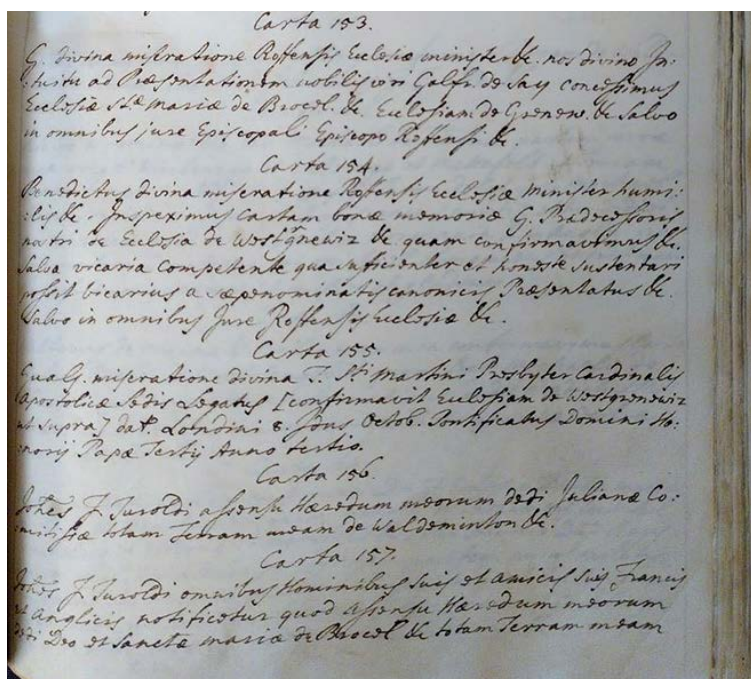 Carta 153.
G. divina miseratione Roffensis Ecclesiæ minister &c. nos divino In:
:tuitu ad Præsentationem nobilis viri Galfr. de Say concessimus
Ecclesiæ Stæ Mariæ de Brocel. &c. Ecclesiam de Grenew. &c. Salvo
in omnibus jure Episcopali Episcopo Roffensi &c.
Carta 154.
Benedictus divina miseratione Roffensis Ecclesiæ minister humi:
:lis &c. Inspeximus Cartam bonæ memoriæ G. Prædecessoris
nostri de Ecclesia de Westgrnewiz &c. quam confirmavimus &c.
Salva vicaria Competente qua suficienter et honeste Sustentari
possit vicarius a sæpenominatis canonicis Præsentatus &c.
Salvo in omnibus Jure Roffensis Ecclesiæ &c.
Carta 155.
Gual. miseratione divina T. Sti Martini Presbyter Cardinalis
Apostolicæ Sedis Legatus [confirmavit Ecclesiam de Westgrenewiz
ut supra] dat. Londini 8. Idus Octob. Pontificatus Domini Ho:
:norij Papæ Tertij Anno tertio.
Carta 156.
Johes F. Turoldi assensu Hæredum meorum dedi Julianæ Co:
:mitissæ totam Terram meam de Waldeminton &c.
Carta 157.
Johes F. Turoldi omnibus Hominibus Suis et amicis Suis Francis
et Anglicis notificetur quod assensu Hæredum meorum
dedi Deo et Sanctæ Mariæ de Brocel &c totam Terram meam